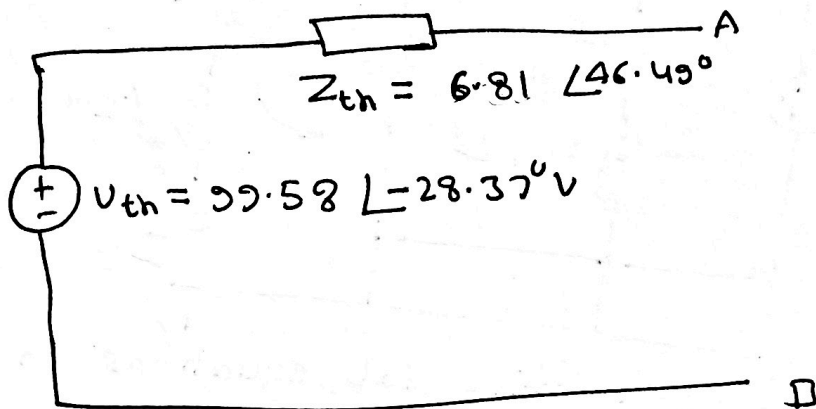 A
Zth = 6.81 ∠46.49°
+
-
Vth = 99.58 ∠-28.37° V